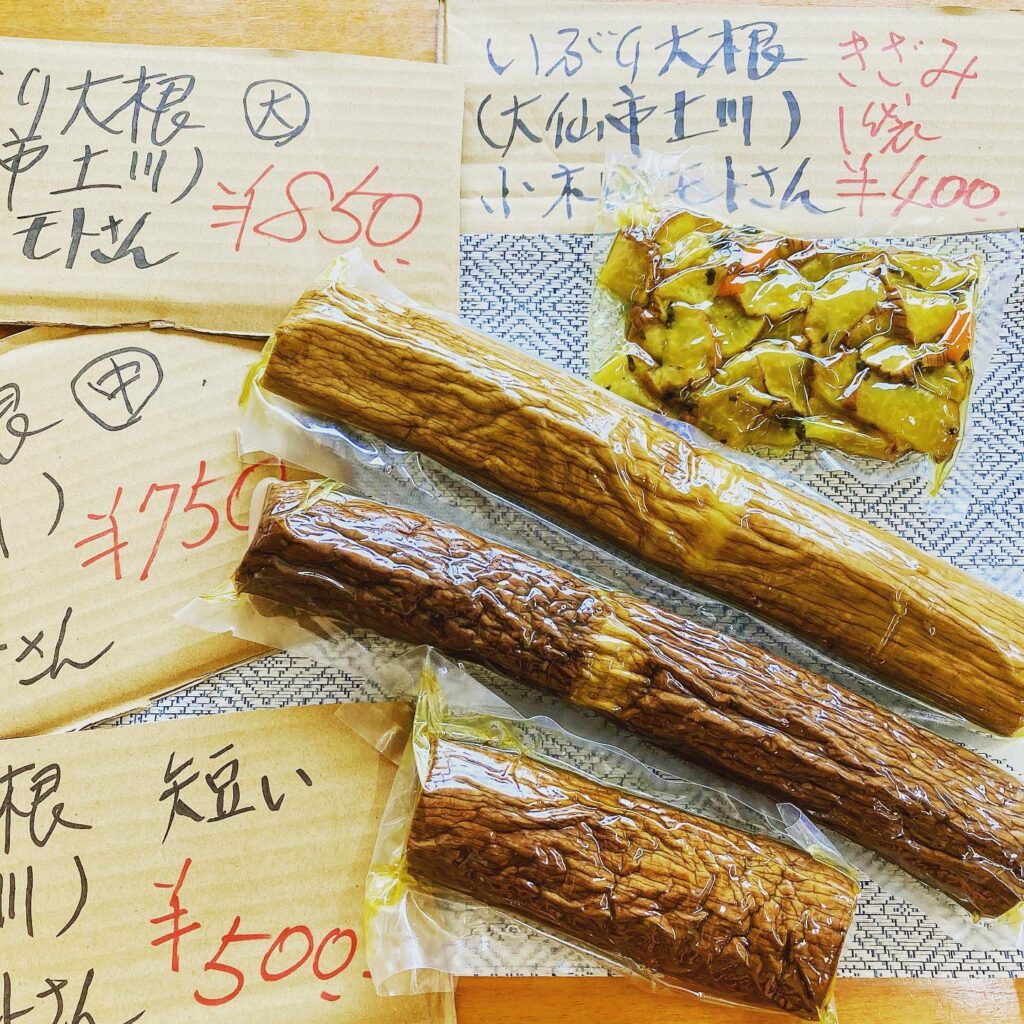 り大根 大
市土川)
モトさん ¥850
いぶり大根 きざみ
(大仙市土川) 1袋
小木 モトさん ¥400
根 中
) ¥750
トさん
根 短い
川)
¥500
トさん